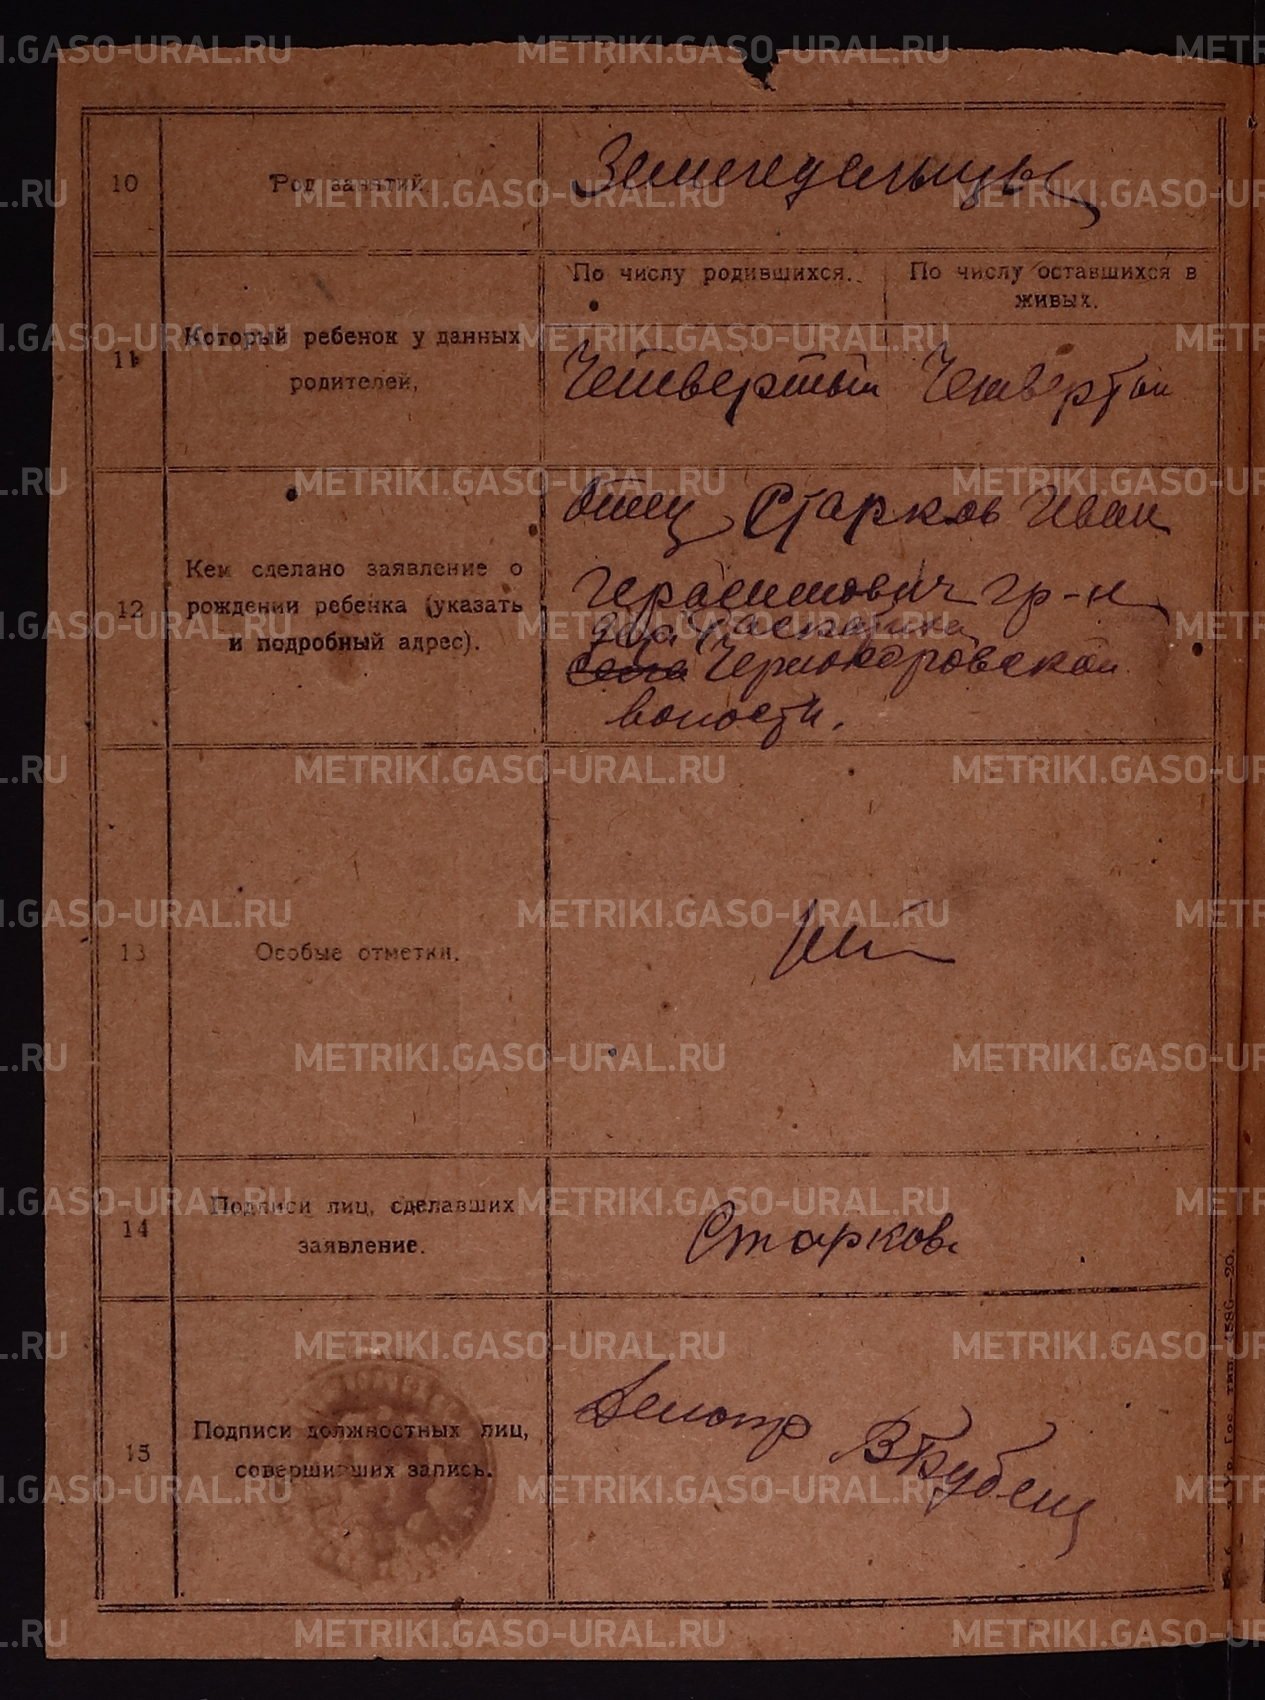 10
Род занятий.
Земледельцы
11
Который ребенок у данных
родителей.
По числу родившихся.
По числу оставшихся в
живых.
Четвертый
Четвертый
12
Кем сделано заявление о
рождении ребенка (указать
и подробный адрес).
Отец Старков Иван
Герасимович гр-н
дер
Черноборовской
волости.
13
Особые отметки.
14
Подписи лиц, сделавших
заявление.
Старков
15
Подписи должностных лиц,
совершивших запись.
METRIKI.GASO-URAL.RU